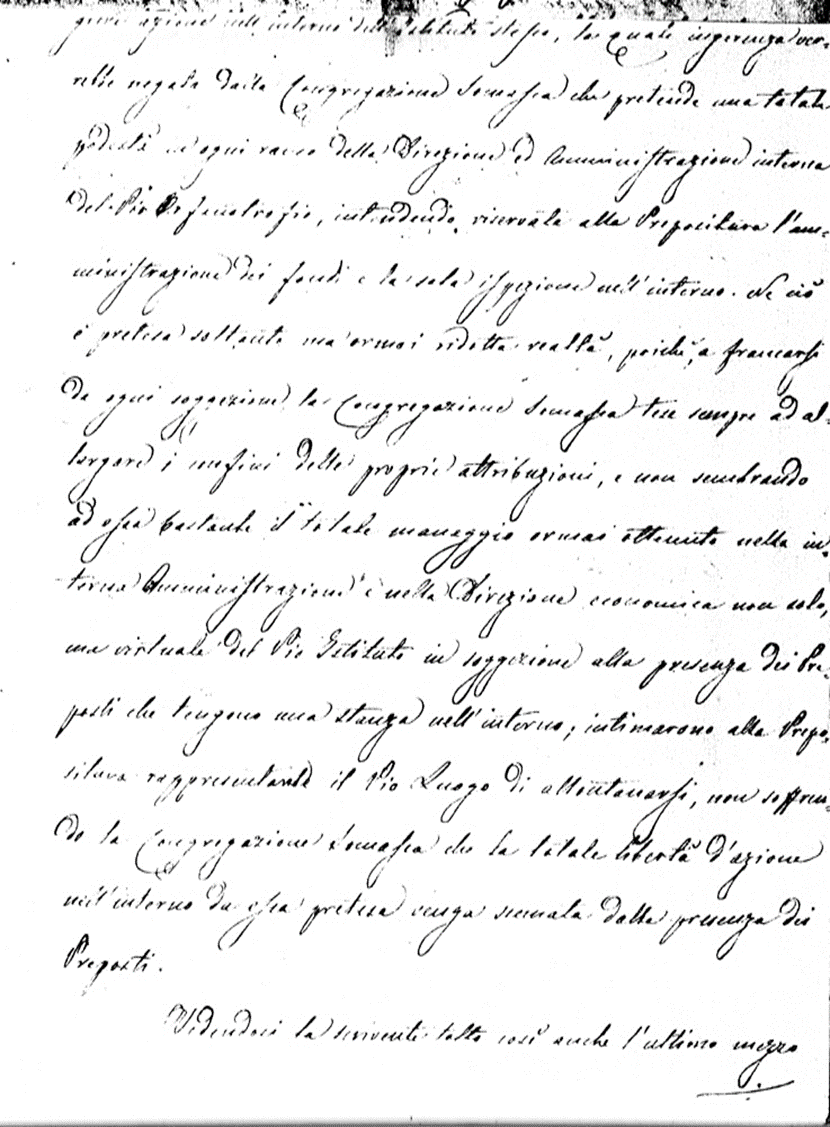 azione nell'interno dell'Istituto stesso, la quale ingerenza ver-
rebbe negata dalla Congregazione Somasca che pretende una totale
podestà in ogni ramo della Direzione ed Amministrazione interna
del Pio Orfanotrofio, intendendo riservata alla Prepositura l'am-
ministrazione dei fondi e la sola ispezione nell'interno. Nè ciò
è pretesa soltanto ma ormai ridotta realtà, poichè a francarsi
da ogni soggezione la Congregazione Somasca tese sempre ad al-
largare i confini delle proprie attribuzioni, e non sembrando
ad essa bastante il totale maneggio ormai ottenuto nella in-
terna Amministrazione e nella Direzione economica non solo,
ma virtuale del Pio Istituto in soggezione alla presenza dei Pre-
posti che tengono una stanza nell'interno; intimarono alla Prepo-
situra rappresentante il Pio Luogo di allontanarsi, non soffren-
do la Congregazione Somasca che la totale libertà d'azione
nell'interno da essa pretesa venga scemata dalla presenza dei
Preposti.
Vedendosi la scrivente tolto così anche l'ultimo mezzo